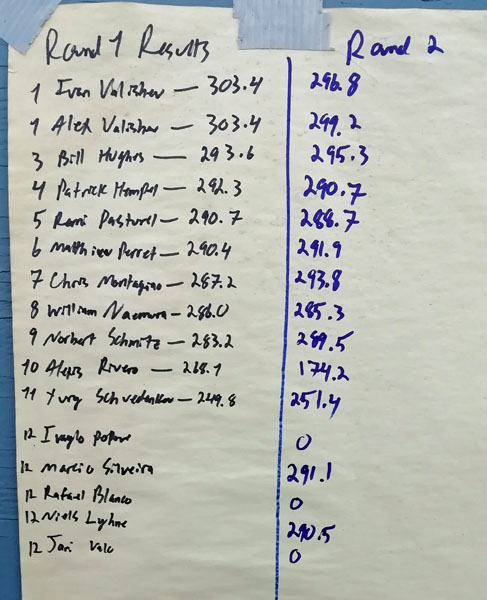 Round 1 Results Round 2
1 Ivan Valishev — 303.4 296.8
1 Alex Valishev — 303.4 299.2
3 Bill Hughes — 293.6 295.3
4 Patrick Hempel — 292.3 290.7
5 Remi Pasturel — 290.7 288.7
6 Matthieu Perret — 290.4 291.9
7 Chris Montagino — 287.2 293.8
8 William Naemura — 286.0 285.3
9 Norbert Schmitz — 283.2 289.5
10 Alexis Rivero — 268.1 174.2
11 Yury — 249.8 251.4
12 Ivaylo 0
12 Marcio Silveira 291.1
12 Rafael Blanco 0
12 Niels Lyhne 290.5
12 Jari Valo 0